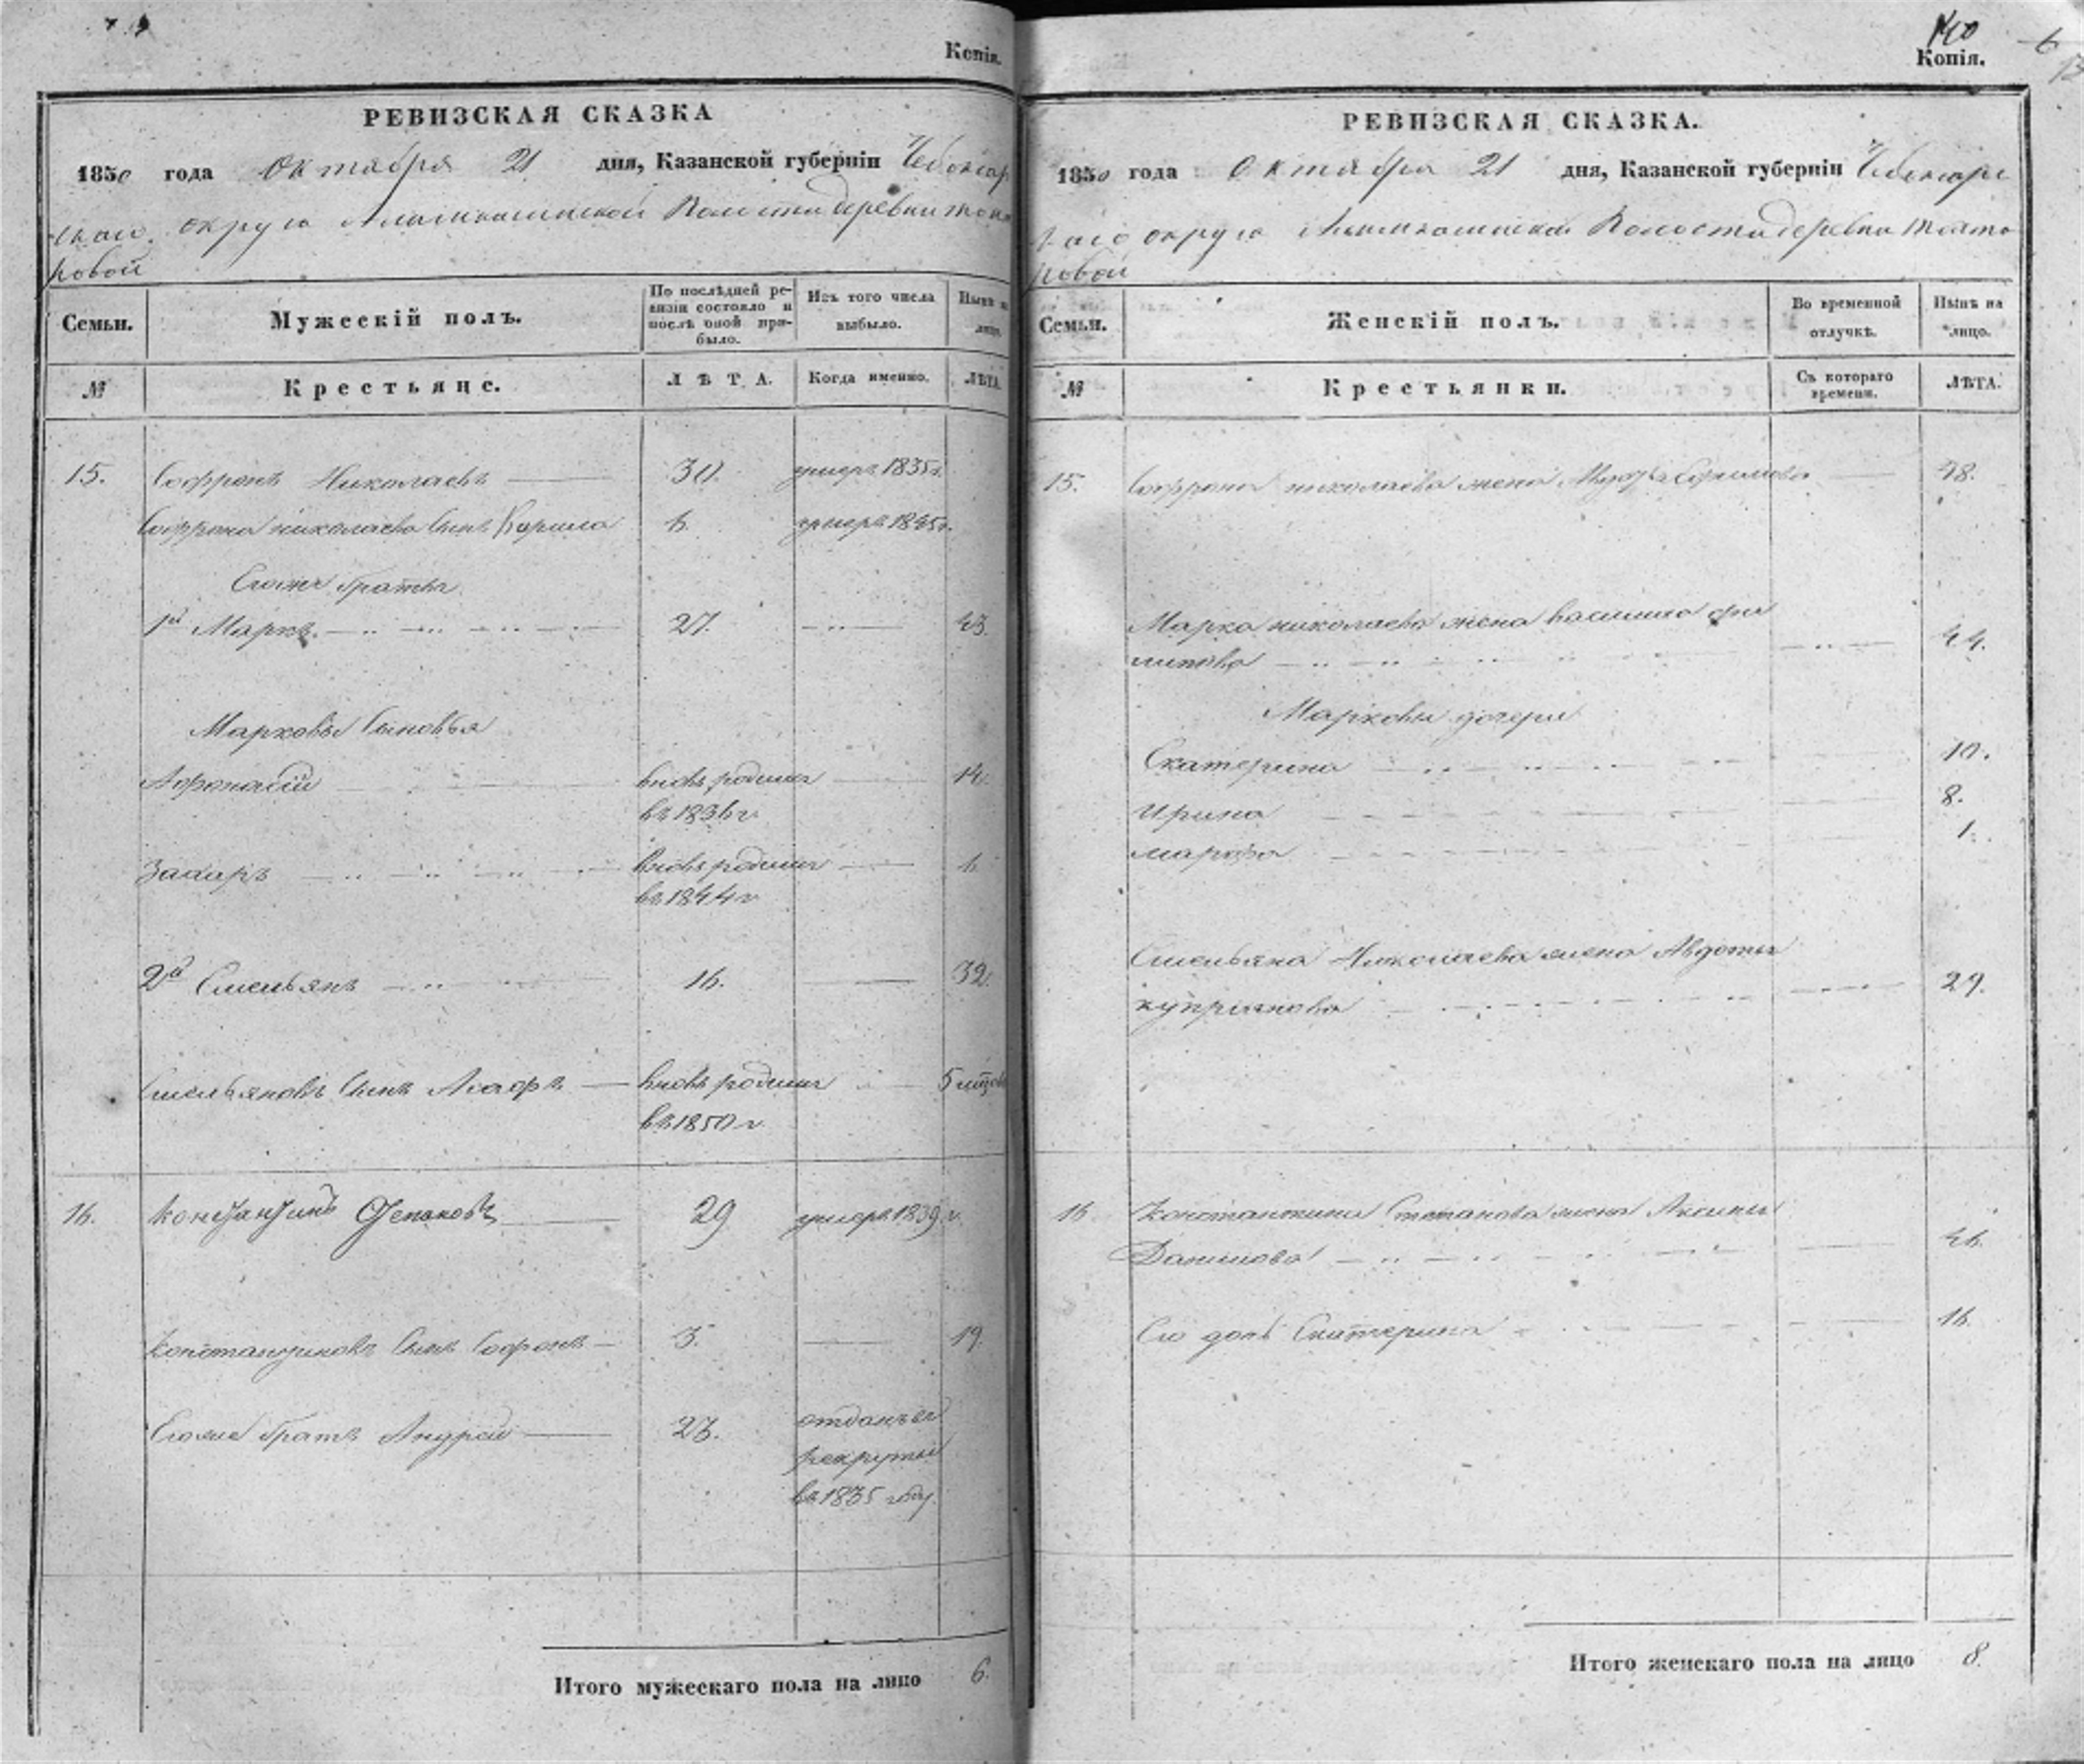 Копія.
РЕВИЗСКАЯ СКАЗКА
1850 года Октября 21 дня, Казанской губерніи Чебоксар
скаго округа Волости деревни
ровой
Семьи. Мужескій полъ. По послѣдней ре- Изъ того числа Нынѣ на
визіи состояло и выбыло. лицо.
послѣ оной при-
было.
№ Крестьяне. ЛѢТА. Когда именно. ЛѢТА.
15. Софронъ Николаевъ 30. умеръ 1835 г.
Софрона николаева Сынъ Кирила 6. умеръ 1845 г.
Егоже братья
1й Марко 27. 43.
Марковы Сыновья
Афонасій вновь родился 14.
въ 1836 г
Захаръ вновь родился 6
въ 1844 г
2й Емельянъ 16. 32.
Емельяновъ Сынъ вновь родился 5
въ 1850 г
16. Константинъ Степановъ 29 умеръ 1839 г.
Константиновъ Сынъ Софронъ 3. 19.
Егоже братъ Андрей 23. отданъ въ
рекруты
въ 1835 году.
Итого мужескаго пола на лицо 6.
140
Копія. 6
13
РЕВИЗСКАЯ СКАЗКА.
1850 года Октября 21 дня, Казанской губерніи Чебоксарс
каго округа Волости деревни
ровой
Семьи. Женскій полъ. Во временной Нынѣ на
отлучкѣ. лицо.
№ Крестьянки. Съ котораго ЛѢТА.
времени.
15. Софрона николаева жена 48.
Марка николаева жена василиса фи
липова 44.
Марковы дочери
Екатерина 10.
Ирина 8.
марфа 1.
Емельяна Николаева жена Авдотья
куприянова 29.
16 Константина Степанова жена Аксинья
Данилова 46.
Его дочь Екатерина 16.
Итого женскаго пола на лицо 8.